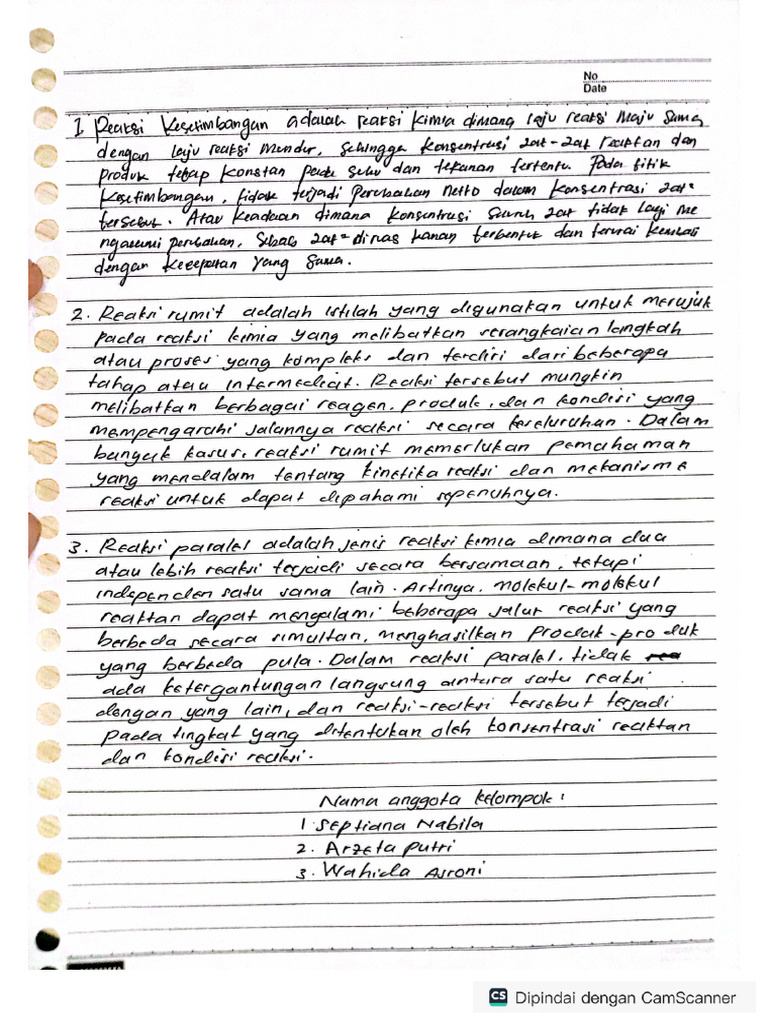 No
Date
1 Reaksi Kesetimbangan adalah reaksi kimia dimana laju reaksi Maju Sama
dengan laju reaksi Mundur, Sehingga Konsentrasi zat-zat reaktan dan
produk tetap Konstan pada Suhu dan tekanan tertentu. Pada titik
Kesetimbangan, tidak terjadi Perubahan Netto dalam Konsentrasi zat²
tersebut. Atau Keadaan dimana Konsentrasi Seluruh zat tidak lagi me
ngalami perubahan, Sebab zat² diruas kanan terbentuk dan terurai Kembali
dengan Kecepatan Yang Sama.
2. Reaksi rumit adalah istilah yang digunakan untuk merujuk
pada reaksi kimia yang melibatkan serangkaian langkah
atau proses yang kompleks dan terdiri dari beberapa
tahap atau intermediat. Reaksi tersebut mungkin
melibatkan berbagai reagen, produk, dan kondisi yang
mempengaruhi jalannya reaksi secara keseluruhan. Dalam
banyak kasus, reaksi rumit memerlukan pemahaman
yang mendalam tentang kinetika reaksi dan mekanisme
reaksi untuk dapat dipahami sepenuhnya.
3. Reaksi paralel adalah jenis reaksi kimia dimana dua
atau lebih reaksi terjadi secara bersamaan, tetapi
independen satu sama lain. Artinya, molekul-molekul
reaktan dapat mengalami beberapa jalur reaksi yang
berbeda secara simultan, menghasilkan Produk-produk
yang berbeda pula. Dalam reaksi paralel, tidak
ada ketergantungan langsung antara satu reaksi
dengan yang lain, dan reaksi-reaksi tersebut terjadi
pada tingkat yang ditentukan oleh konsentrasi reaktan
dan kondisi reaksi.
Nama anggota kelompok:
1 Septiana Nabila
2. Arzeta putri
3. Wahida Asroni
CS Dipindai dengan CamScanner